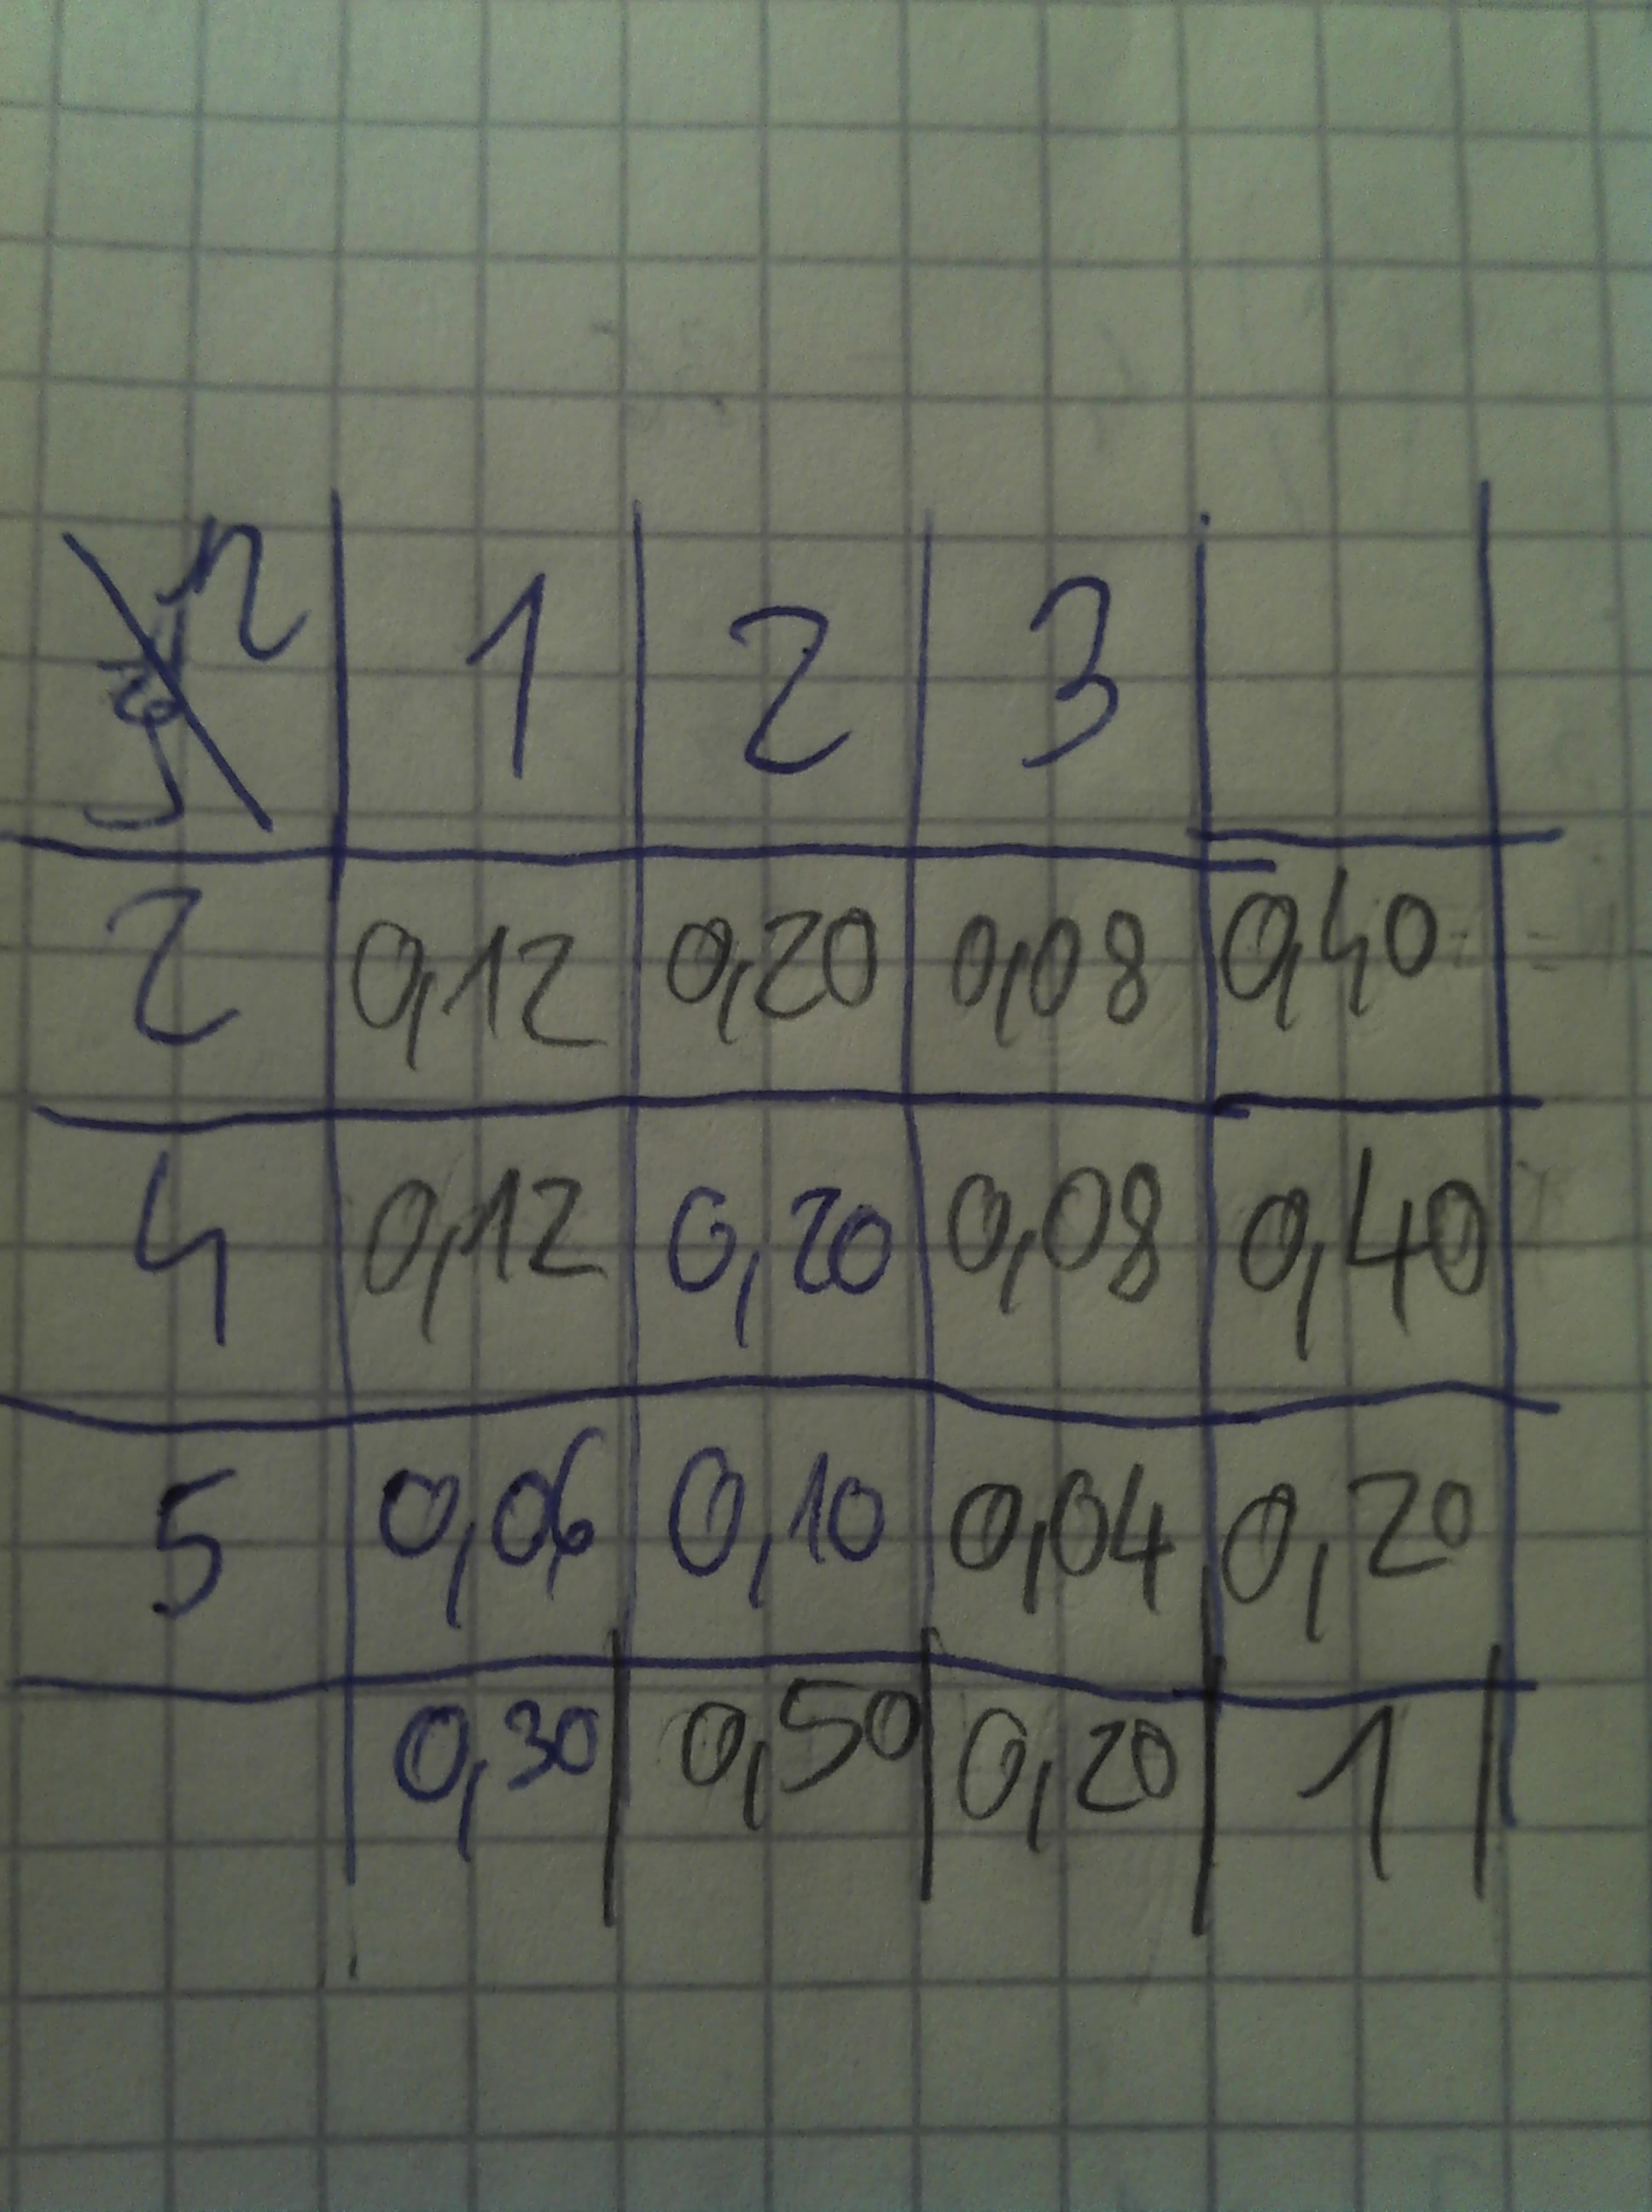 ξ η 1 2 3
2 0,12 0,20 0,08 0,40
4 0,12 0,20 0,08 0,40
5 0,06 0,10 0,04 0,20
0,30 0,50 0,20 1